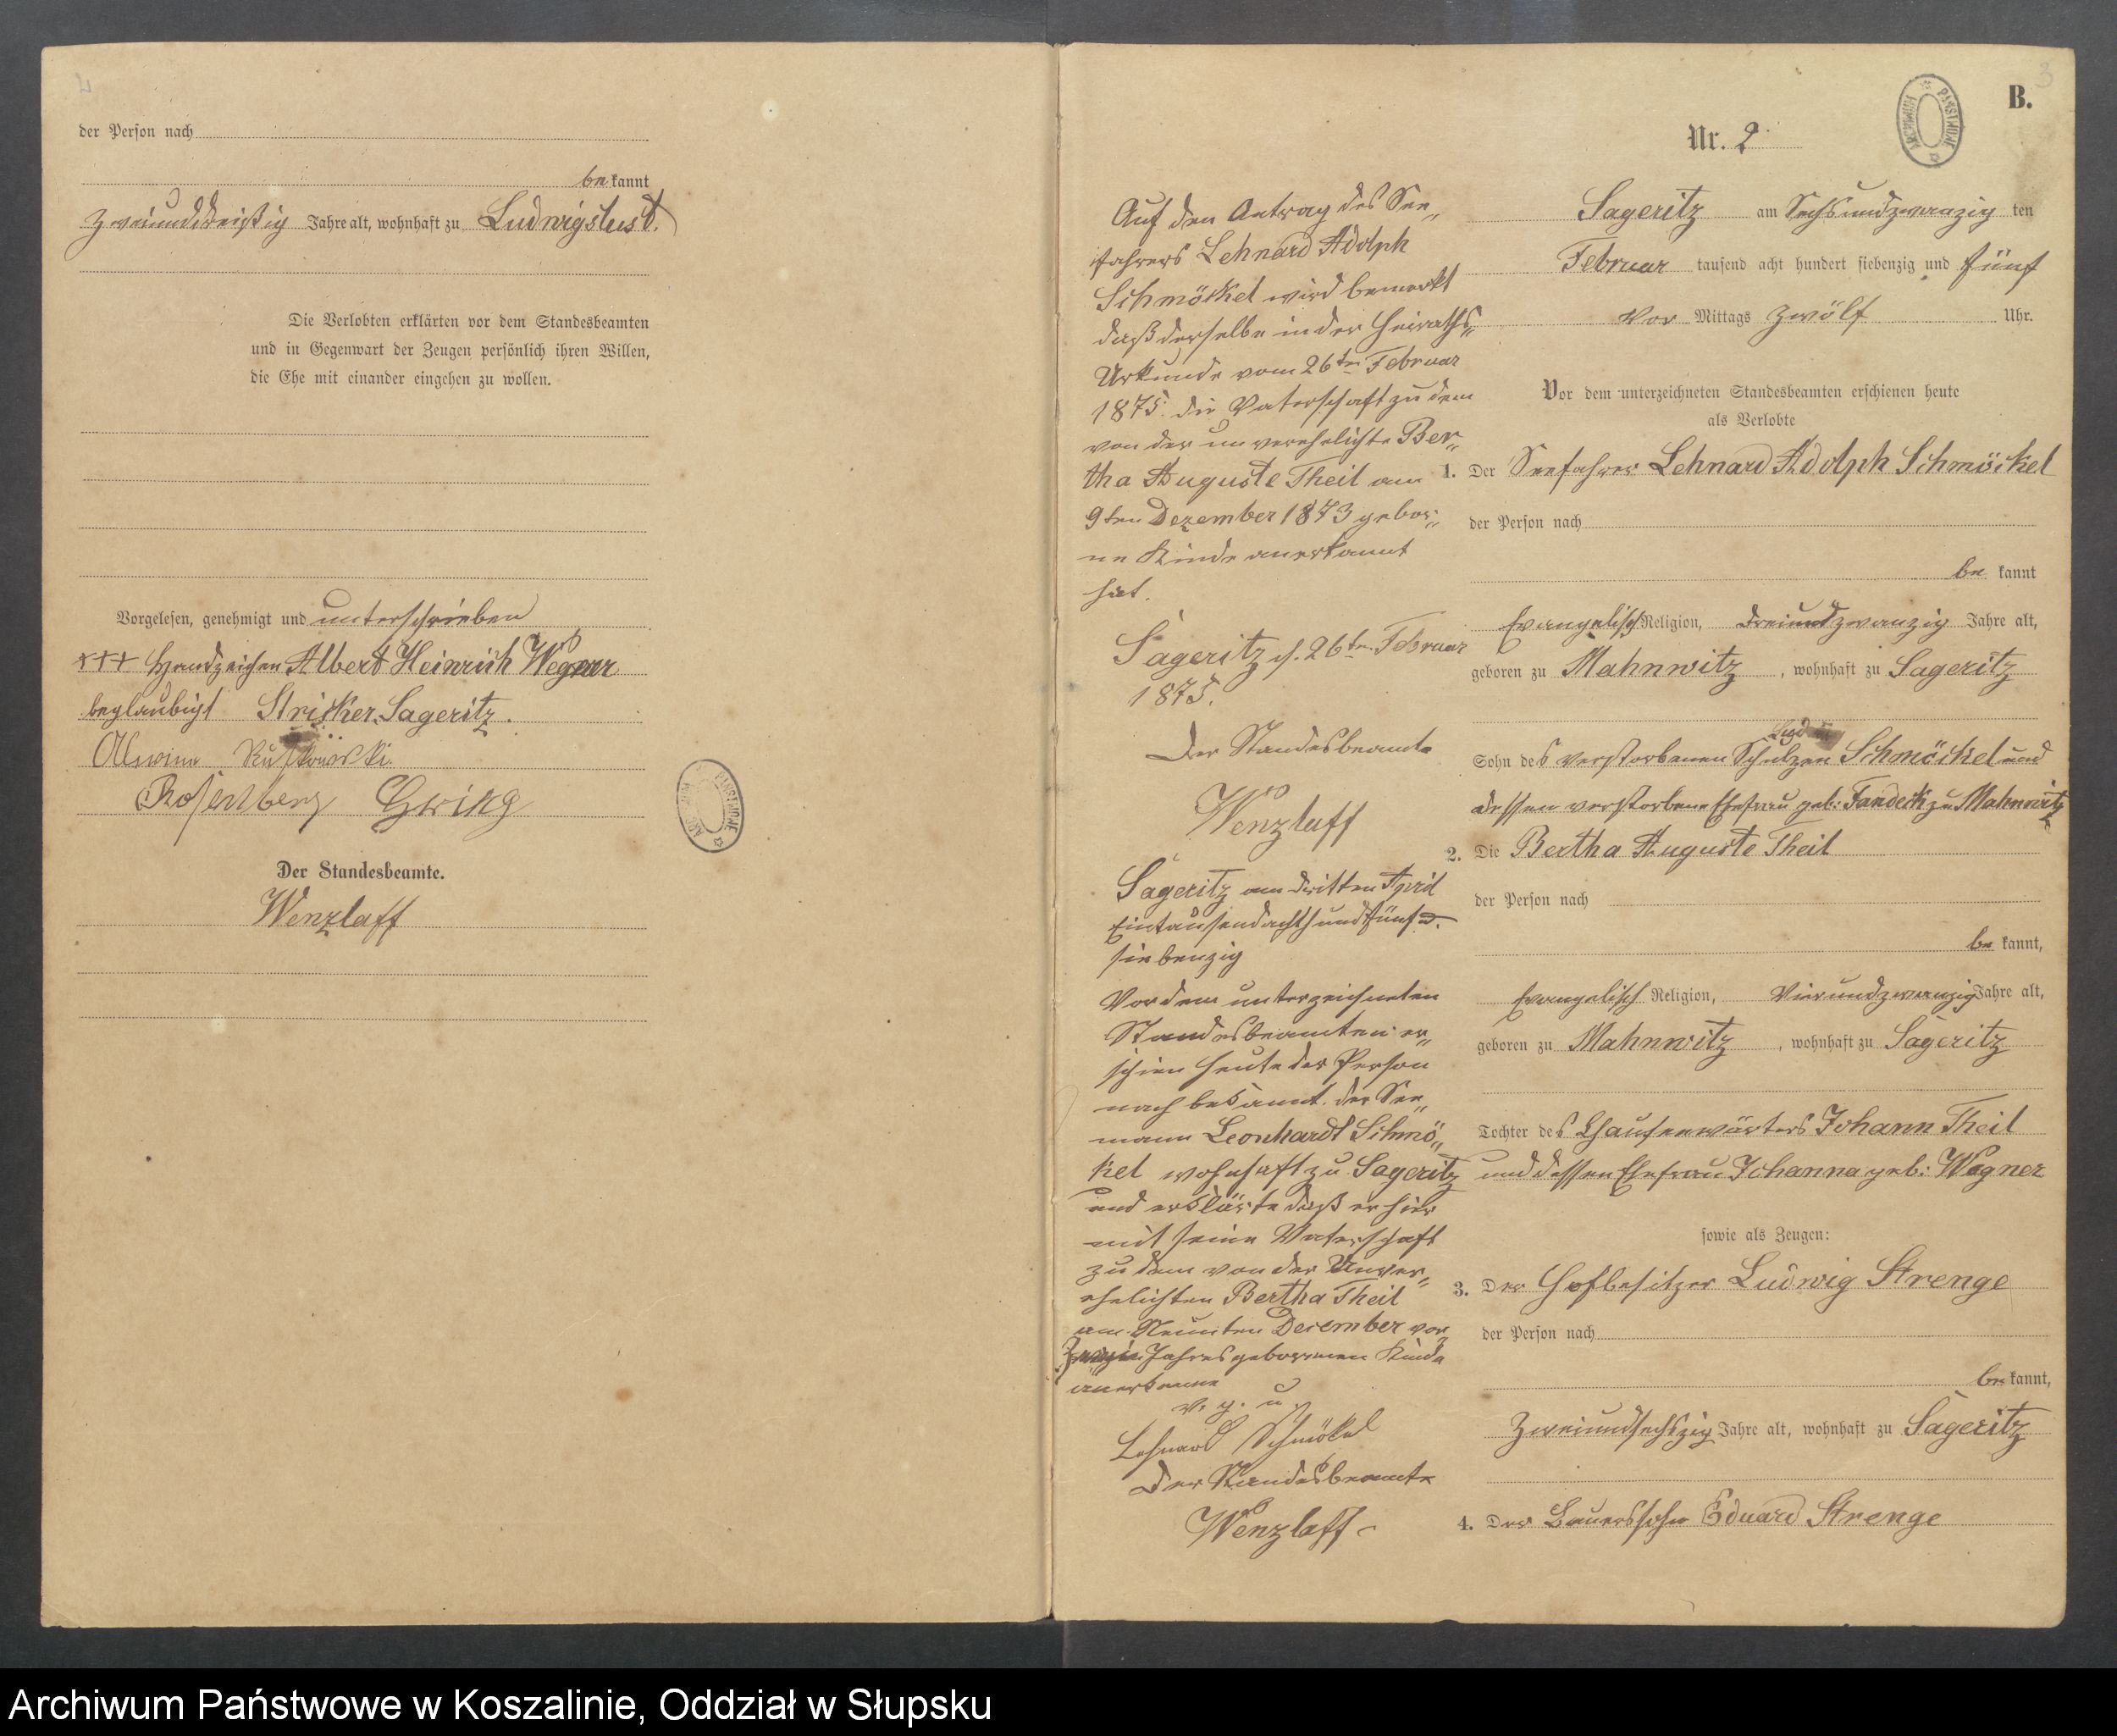 der Person nach
be kannt
zweiunddreißig Jahre alt, wohnhaft zu Ludwigslust.
Die Verlobten erklärten vor dem Standesbeamten
und in Gegenwart der Zeugen persönlich ihren Willen,
die Ehe mit einander eingehen zu wollen.
Vorgelesen, genehmigt und unterschrieben
+++ Handzeichen Albert Heinrich Wegner
beglaubigt Stricker. Sageritz.
Alwine
Rosenberg Gwing
Der Standesbeamte.
Wenzlaff
B.
3
ARCHIWUM PAŃSTWOWE
Nr. 2
Auf den Antrag des See„
fahrers Lehnard Adolph
Schmöckel wird bemerkt
daß derselbe in der Heiraths„
Urkunde vom 26ten Februar
1875. die Vaterschaft zu dem
von der unverehelichte Ber„
tha Auguste Theil am
9ten Dezember 1873 gebor„
ne Kinde anerkannt
hat.
Sageritz d. 26ten Februar
1875.
Der Standesbeamte
Wenzlaff
Sageritz am dritten April
Eintausendachthundfünfu.
siebenzig
Vor dem unterzeichneten
Standesbeamten er„
schien heute der Person
nach bekannt. der See„
mann Leonhardt Schmö„
kel wohnhaft zu Sageritz
und erklärte daß er hier
mit seine Vaterschaft
zu dem von der Unver„
ehelichten Bertha Theil
am Neunten December vor
Jahres geborenen Kinde
anerkenne
v. g. u.
Lehnard Schmökel
Der Standesbeamte
Wenzlaff
Sageritz am Sechsundzwanzig ten
Februar tausend acht hundert siebenzig und fünf
Vor Mittags zwölf Uhr.
Vor dem unterzeichneten Standesbeamten erschienen heute
als Verlobte
1. Der Seefahrer Lehnard Adolph Schmöckel
der Person nach
be kannt
Evangelisch Religion, dreiundzwanzig Jahre alt,
geboren zu Mahnwitz, wohnhaft zu Sageritz
Sohn des verstorbenen Schulzen Schmöckel und
dessen verstorbene Ehefrau geb: Fandeck zu Mahnwitz
2. Die Bertha Auguste Theil
der Person nach
be kannt,
Evangelisch Religion, Vierundzwanzig Jahre alt,
geboren zu Mahnwitz, wohnhaft zu Sageritz
Tochter des Chauseewärters Johann Theil
und dessen Ehefrau Johanna geb: Wegner
sowie als Zeugen:
3. Der Hofbesitzer Ludwig Strenge
der Person nach
be kannt,
Zweiundsechszig Jahre alt, wohnhaft zu Sageritz
4. Der Bauerssohn Eduard Strenge
ARCHIWUM PAŃSTWOWE
Archiwum Państwowe w Koszalinie, Oddział w Słupsku